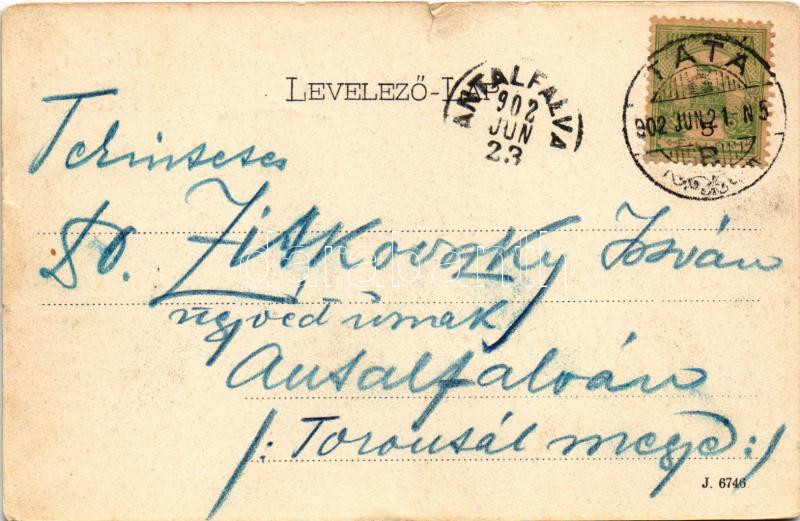 LEVELEZŐ-LAP
ANTALFALVA
902
JUN
23
TATA
902 JUN 21. N5
B
Tekintetes
Dr. Zitkovszky István
ügyvéd úrnak
Antalfalván
/: Torontál megye :/
J. 6746